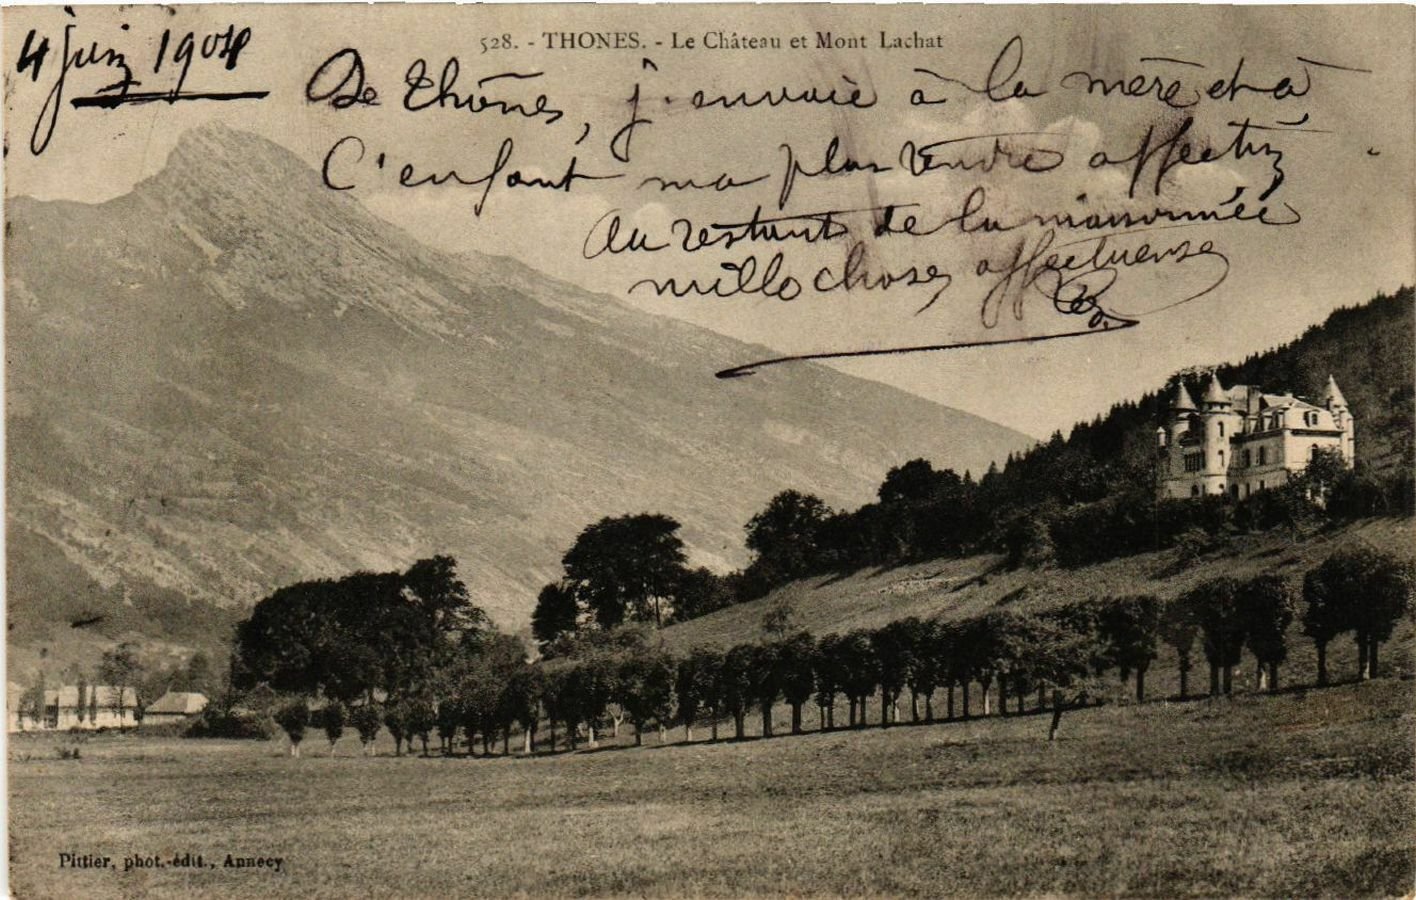 528. - THONES. - Le Château et Mont Lachat
4 juin 1904
De Thônes, j'envoie à la mère et à
l'enfant ma plus tendre affection
Au restant de la maisonnée
mille choses affectueuses
Pittier, phot.-édit., Annecy